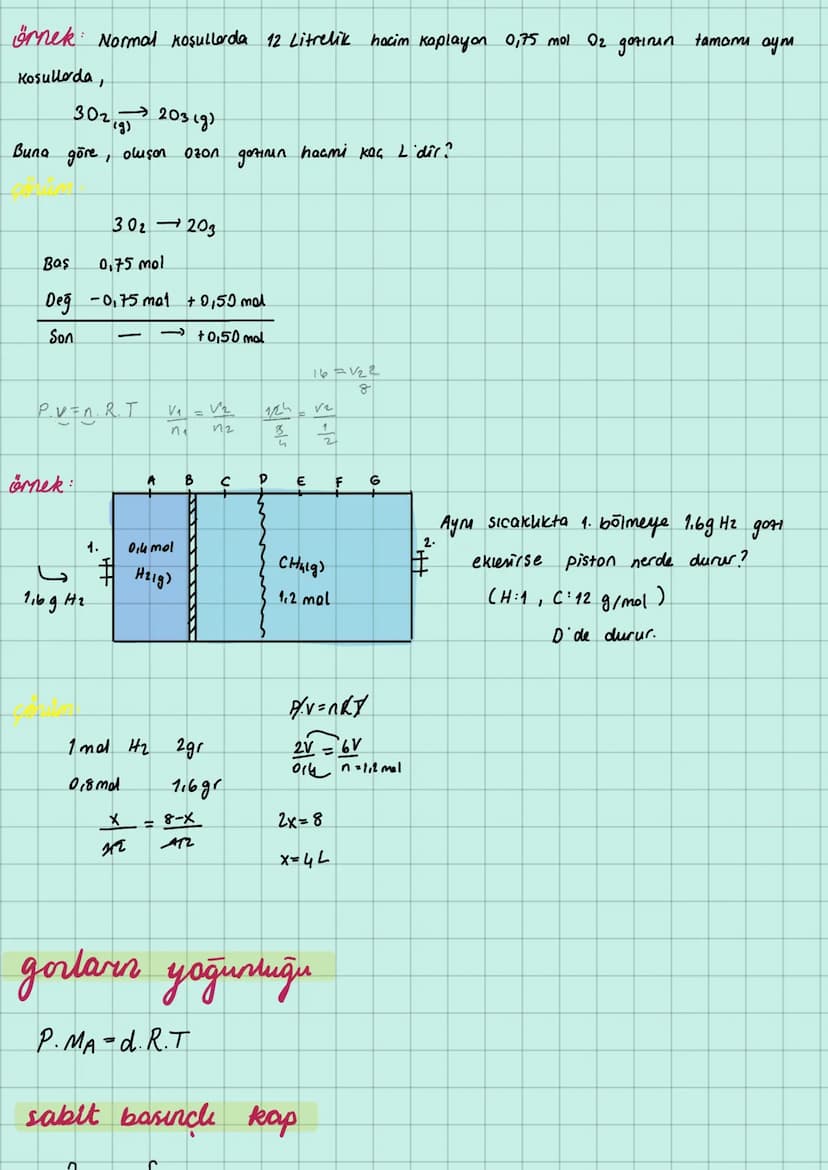 örnek: Normal koşullarda 12 Litrelik hacim kaplayan 0,75 mol O2 gazının tamamı aynı
koşullarda,
3O2(g) → 2O3(g)
Buna göre, oluşan ozon gazının hacmi kaç L'dir?
çözüm:
3O2 → 2O3
Baş 0,75 mol
Değ -0,75 mol +0,50 mol
Son — → +0,50 mol
16 = V2 2
8
P.V=n.R.T V1/n1 = V2/n2
örnek:
A B C D E F G
1. 0,4 mol H2(g)
1,6 g H2
CH4(g)
1,2 mol
2.
Aynı sıcaklıkta 1. bölmeye 1,6g H2 gazı
eklenirse piston nerde durur?
(H:1, C:12 g/mol)
D'de durur.
çözüm:
P.V=nRT
1 mol H2 2gr
0,8mol 1,6gr
2V/0,4 = 6V/n=1,2 mol
x/1,2 = 8-x/1,2
2x=8
x=4L
gazların yoğunluğu
P.MA=d.R.T
sabit basınçlı kap